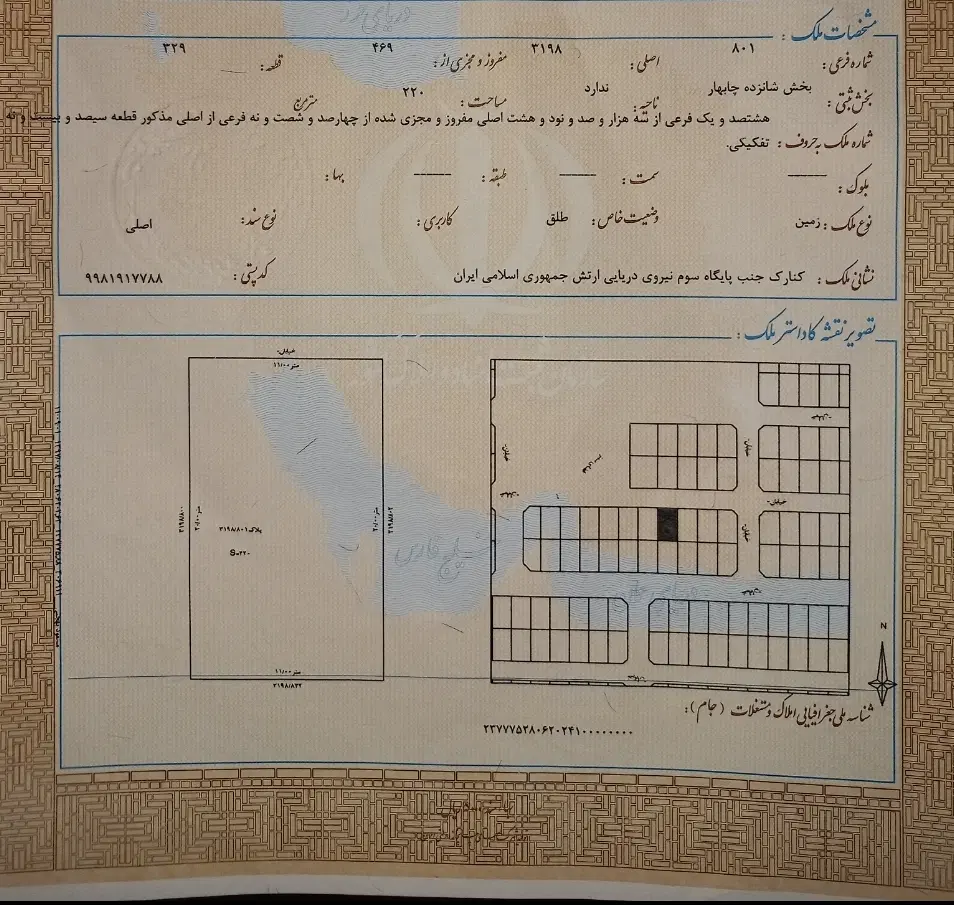 مشخصات ملک :
شماره فرعی : ۸۰۱ اصلی : ۳۱۹۸ مفروز و مجزی از : ۴۶۹ قطعه : ۳۲۹
بخش ثبتی : بخش شانزده چابهار ناحیه : ندارد مساحت : ۲۲۰ مترمربع
هشتصد و یک فرعی از سه هزار و صد و نود و هشت اصلی مفروز و مجزی شده از چهارصد و شصت و نه فرعی از اصلی مذکور قطعه سیصد و بیست و نه
شماره ملک به حروف : تفکیکی.
بلوک : سمت : طبقه : بها :
نوع ملک : زمین وضعیت خاص : طلق کاربری : نوع سند : اصلی
نشانی ملک : کنارک جنب پایگاه سوم نیروی دریایی ارتش جمهوری اسلامی ایران کد پستی : ۹۹۸۱۹۱۷۷۸۸
تصویر نقشه کاداستر ملک :
خیابان
۱۱/۰۰ متر
۳۱۹۸/۸۰۰
۳۱۹۸/۸۰۲
پلاک ۳۱۹۸/۸۰۱
S=۲۲۰
۱۱/۰۰ متر
۳۱۹۸/۸۳۲
خلیج فارس
N
شناسه ملی جغرافیایی املاک و مستغلات (جام) :
۲۳۷۷۷۵۲۸۰۶۲۰۲۴۱۰۰۰۰۰۰۰۰۰